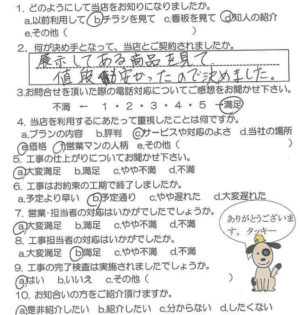 1. どのようにして当店をお知りになりましたか。
a.以前利用して b.チラシを見て c.看板を見て d.知人の紹介
e.その他( )
2. 何が決め手となって、当店とご契約されましたか。
展示してある商品を見て、
値段も安かったので決めました。
3.お問合せを頂いた際の電話対応についてご感想をお聞かせ下さい。
不満 ← 1・2・3・4・5 →満足
4. 当店を利用するにあたって重視したことは何ですか。
a.プランの内容 b.評判 c.サービスや対応のよさ d.当社の場所
e.価格 f.営業マンの人柄 e.その他( )
5. 工事の仕上がりについてお聞かせ下さい。
a.大変満足 b.満足 c.やや不満 d.不満
6. 工事はお約束の工期で終了しましたか。
a.予定より早い b.予定通り c.やや遅れた d.大変遅れた
7. 営業・担当者の対応はいかがでしたでしょうか。
a.大変満足 b.満足 c.やや不満 d.不満
8. 工事担当者の対応はいかがでしたか。
a.大変満足 b.満足 c.やや不満 d.不満
9. 工事の完了検査は実施されましたでしょうか。
a.はい b.いいえ c.その他( )
10. お知合いの方をご紹介頂けますか。
a.是非紹介したい b.紹介したい c.分からない d.したくない
ありがとうございま
す。タッキー